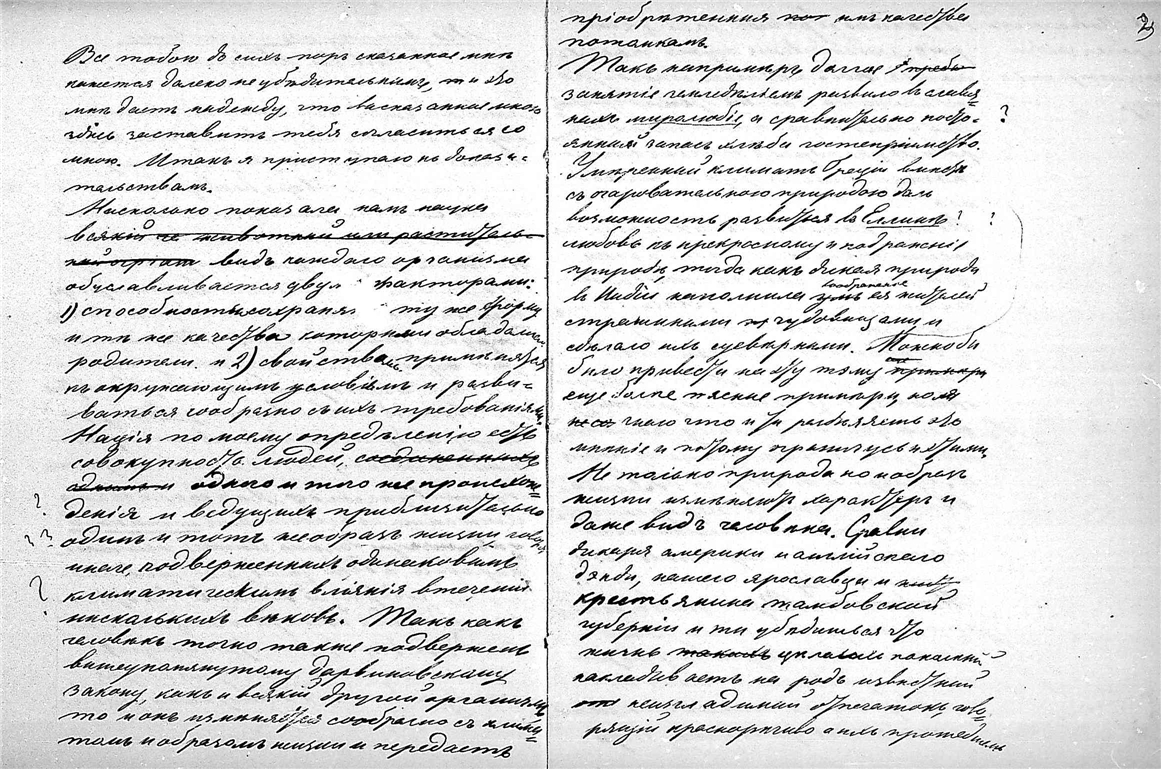 Все тобою до сихъ поръ сказанное мнѣ
кажется далеко не убѣдительнымъ, и это
мнѣ даетъ надежду, что высказанное мною
здѣсь заставитъ тебя согласиться со
мною. Итакъ я приступаю къ доказа-
тельствамъ.
Насколько показала намъ наука
всякій не животный или раститель-
ный органъ видъ каждаго организма
обуславливается двумя факторами:
1) способностью сохранять ту же форму
и тѣ же качества которыми обладали
родители и 2) свойствомъ примѣняться
къ окружающимъ условіямъ и разви-
ваться сообразно съ ихъ требованіями.
Нація по моему опредѣленію есть
совокупность людей, соединенныхъ
одного и того же происхож-
денія и ведущихъ приблизительно
? одинъ и тотъ же образъ жизни говоря
?? иначе, подверженныхъ одинаковымъ
? климатическимъ вліяніямъ втеченіи
нѣсколькихъ вѣковъ. Такъ какъ
человѣкъ точно также подверженъ
вышеупомянутому дарвиновскому
закону, какъ и всякій другой организмъ,
то и онъ измѣняется сообразно съ клима-
томъ и образомъ жизни и передастъ
2
пріобрѣтенныя имъ качества
потомкамъ.
Такъ напримѣръ долгое
занятіе земледѣліемъ развило въ славя-
нахъ миролюбіе, а сравнительно посто- ?
янный запасъ хлѣба гостепріимство.
Умѣренный климатъ Греціи вмѣстѣ
съ очаровательною природою далъ
возможность развиться въ Еллинѣ ? ?
любовь къ прекрасному и подражаніе
природѣ, тогда какъ дикая природа
въ Индіи наполнила умъ воображеніе ея жителей
страшными чудовищами и
сдѣлало ихъ суевѣрными. Можно бы
было привести на эту тему примѣры
еще болѣе ясные примѣры но я
знаю что и ты раздѣляешь это
мнѣніе и потому ограничусь этими.
Не только природа но и образъ
жизни измѣняютъ характеръ и
даже видъ человѣка. Сравни
дикаря америки и англійскаго
дэнди, нашего ярославца и
крестьянина тамбовской
губерніи и ты убѣдишься что
жизнь поколѣній
накладываетъ на родъ извѣстный
неизгладимый отпечатокъ, гово-
рящій краснорѣчиво о ихъ прошедшемъ